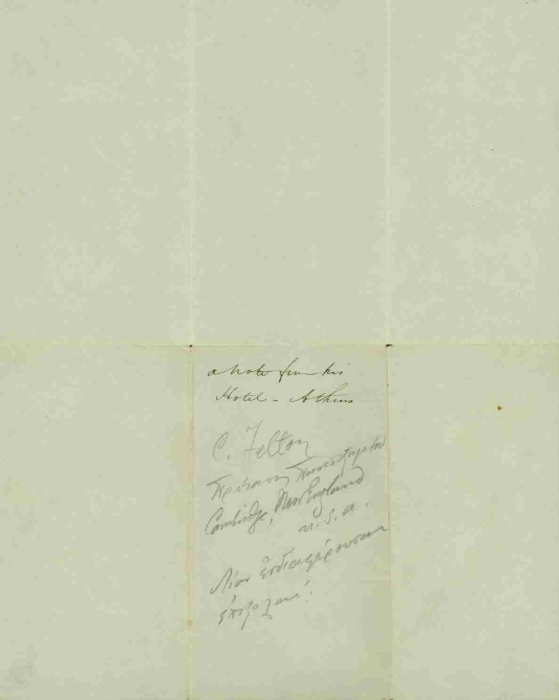 a note from his
Hotel - Athens
C. Felton
Πρύτανις Πανεπιστημίου
Cambridge, New England
U.S.A.
Λίαν ἐνδιαφέρουσαι
ἐπιστολαί!